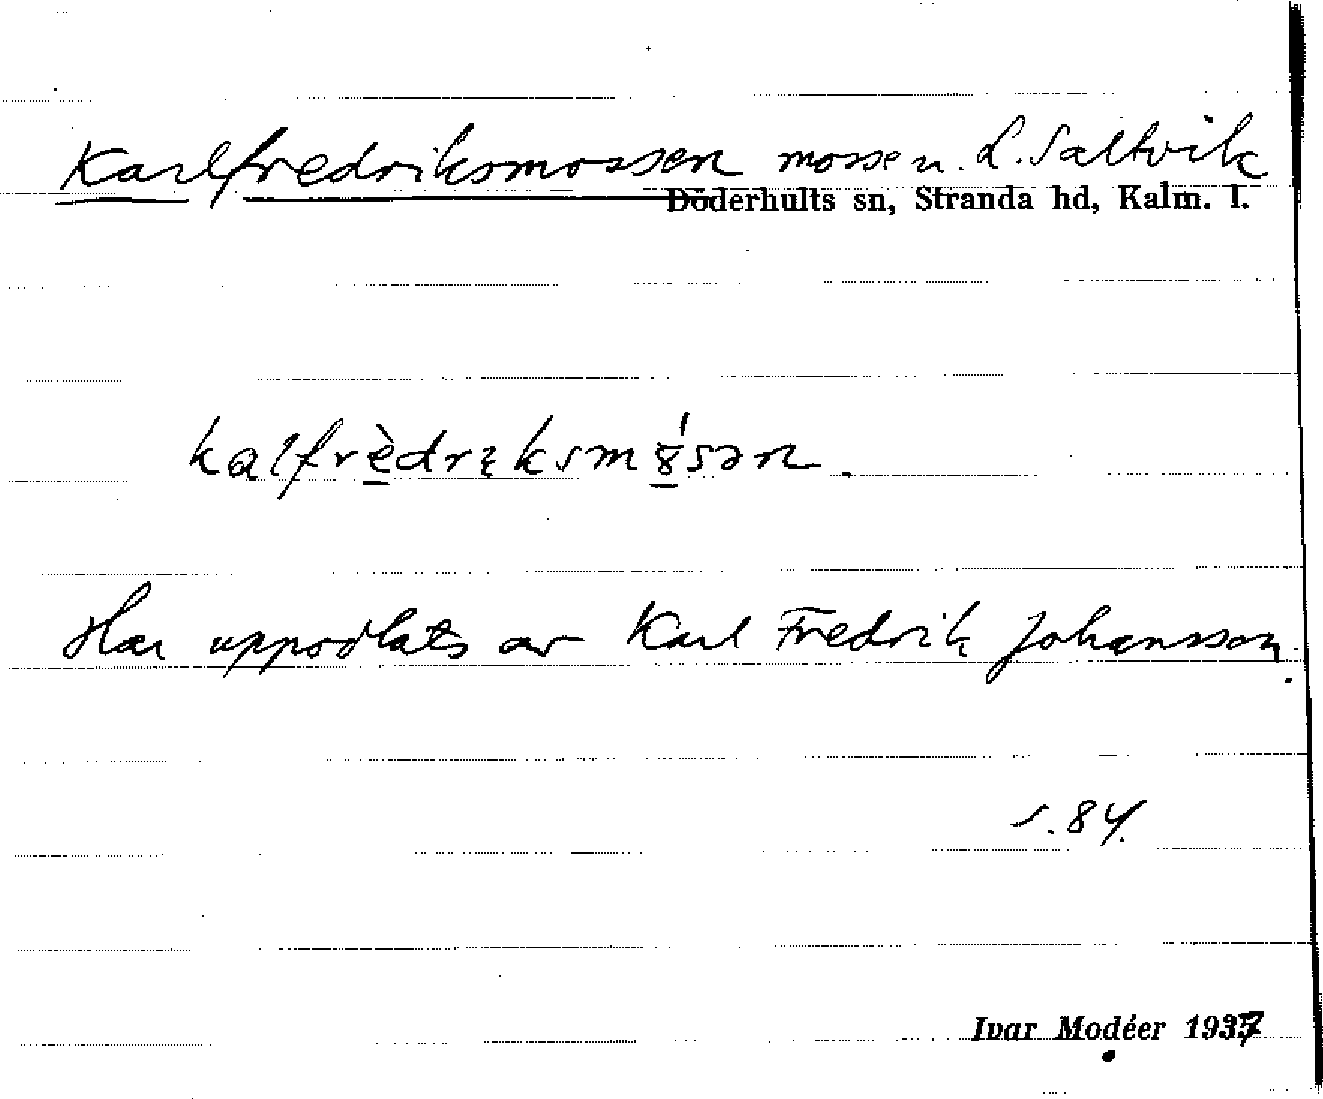 Karlfredriksmossen mosse u. L. Saltvik
Döderhults sn, Stranda hd, Kalm. l.
Har uppodlats av Karl Fredrik Johansson.
s. 84.
Ivar Modéer 1937